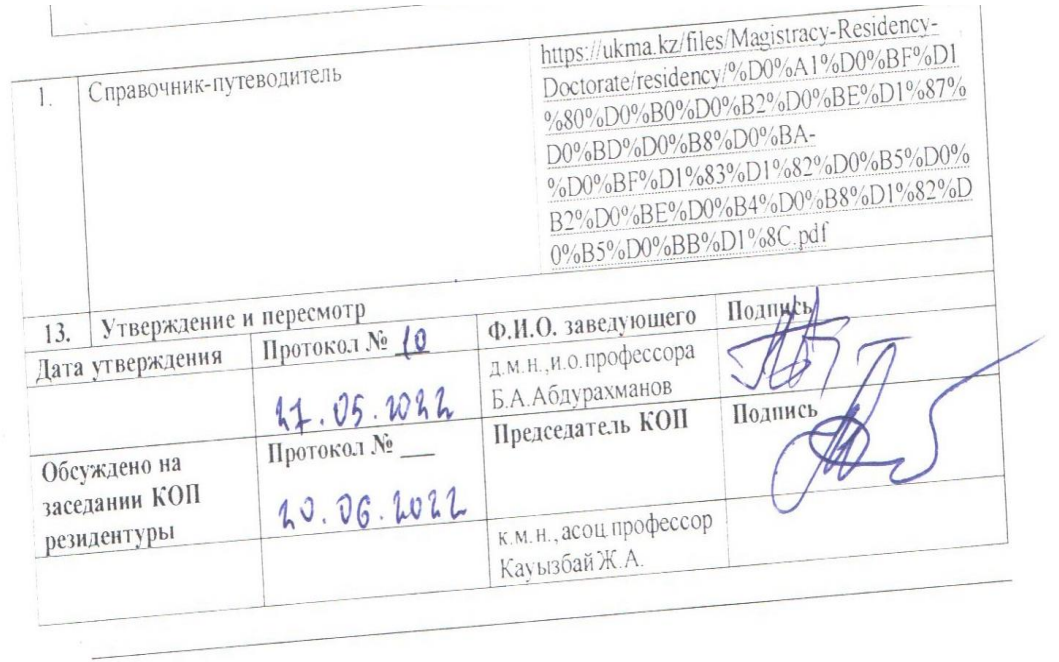 1. Справочник-путеводитель
https://ukma.kz/files/Magistracy-Residency-
Doctorate/residency/%D0%A1%D0%BF%D1
%80%D0%B0%D0%B2%D0%BE%D1%87%
D0%BD%D0%B8%D0%BA-
%D0%BF%D1%83%D1%82%D0%B5%D0%
B2%D0%BE%D0%B4%D0%B8%D1%82%D
0%B5%D0%BB%D1%8C.pdf
13. Утверждение и пересмотр
Дата утверждения
Протокол № 10
27.05.2022
Ф.И.О. заведующего
д.м.н.,и.о.профессора
Б.А.Абдурахманов
Подпись
Обсуждено на
заседании КОП
резидентуры
Протокол № __
20.06.2022
Председатель КОП
Подпись
к.м.н.,асоц.профессор
Кауызбай Ж.А.